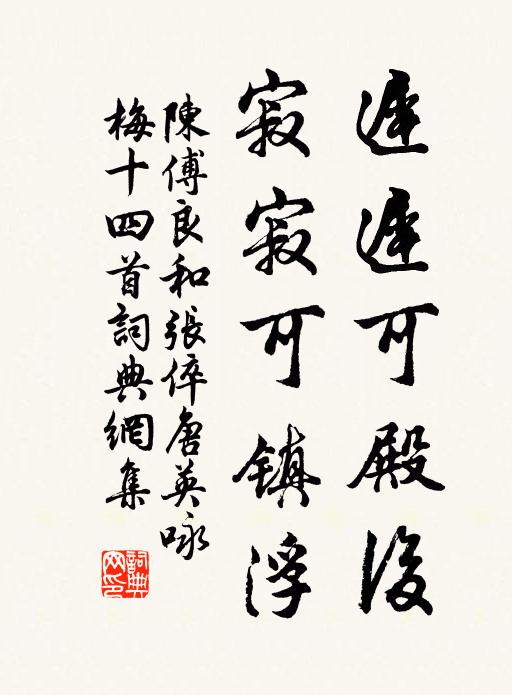 遲遲可殿後
寂寂可鎮浮
陳傅良和張倅唐英咏
梅十四首詞典網集
詞典网印